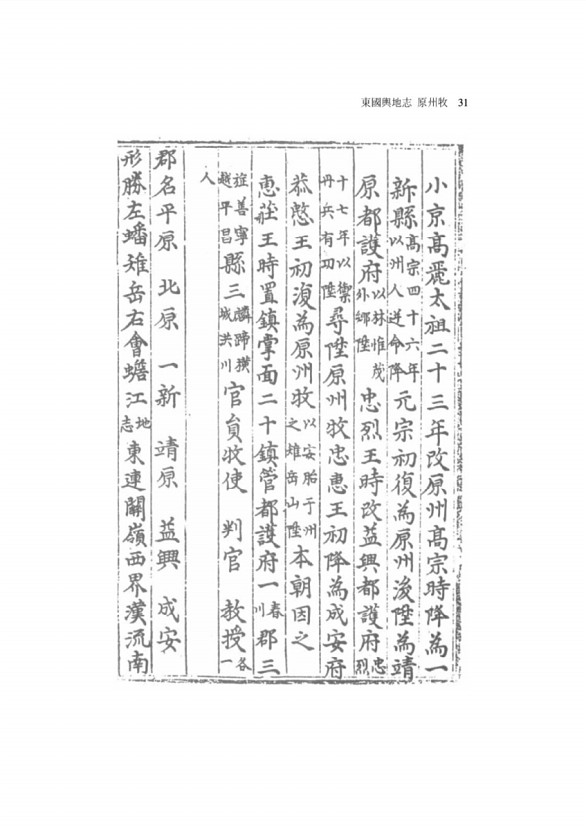 東國輿地志 原州牧 31
小京高麗太祖二十三年改原州高宗時降為一
新縣高宗四十六年以州人逆命降元宗初復為原州後陞為靖
原都護府以林惟茂外鄉陞忠烈王時改益興都護府忠烈
十七年以禦丹兵有功陞尋陞原州牧忠惠王初降為成安府
恭愍王初復為原州牧以安胎于州之雉岳山陞本朝因之
惠莊王時置鎮掌面二十鎮管都護府一春川郡三
旌善寧越平昌縣三麟蹄橫城洪川官員牧使 判官 教授各一
人
郡名平原 北原 一新 靖原 益興 成安
形勝左蟠雉岳右會蟾江地志東連關嶺西界漢流南